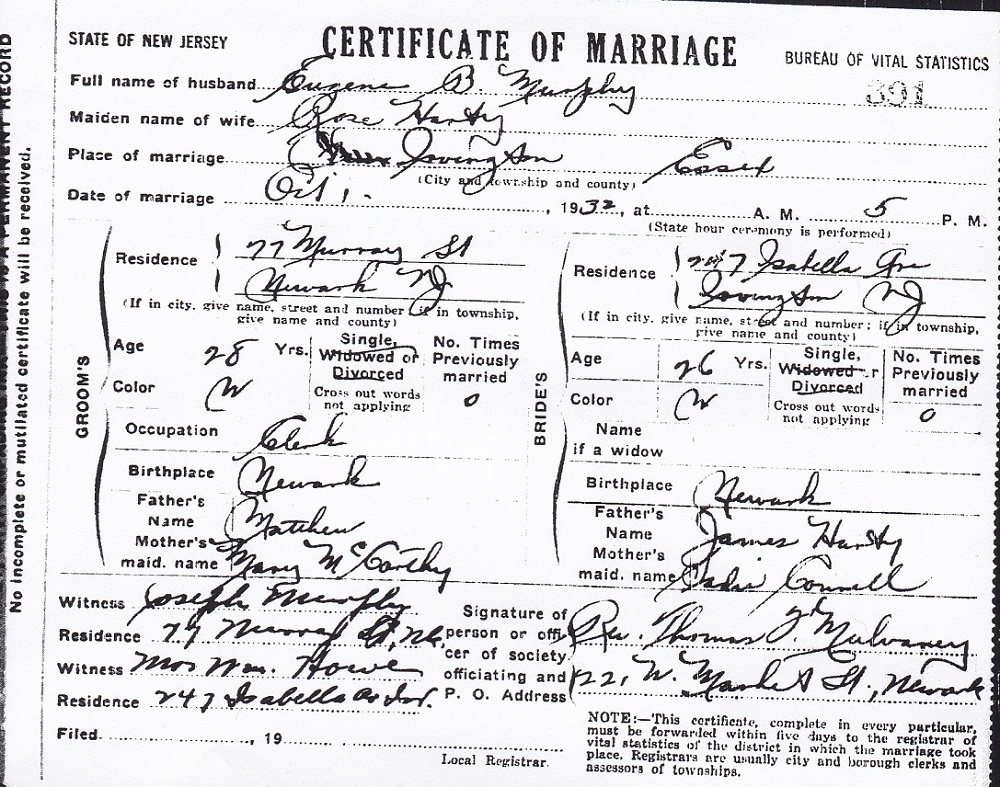 STATE OF NEW JERSEY
CERTIFICATE OF MARRIAGE
BUREAU OF VITAL STATISTICS
391
Full name of husband Eugene B. Murphy
Maiden name of wife Rose Harty
Place of marriage Irvington Essex
(City and township and county)
Date of marriage Oct 1, 1932, at A. M. 5 P. M.
(State hour ceremony is performed)
No incomplete or mutilated certificate will be received.
GROOM'S
Residence 77 Murray St
Newark NJ
(If in city, give name, street and number; if in township,
give name and county)
Age 28 Yrs.
Color W
Single,
Widowed or
Divorced
Cross out words
not applying
No. Times
Previously
married
0
Occupation Clerk
Birthplace Newark
Father's
Name Matthew
Mother's
maid. name Mary McCarthy
BRIDE'S
Residence 247 Isabella Ave
Irvington NJ
(If in city, give name, street and number; if in township,
give name and county)
Age 26 Yrs.
Color W
Single,
Widowed or
Divorced
Cross out words
not applying
No. Times
Previously
married
0
Name
if a widow
Birthplace Newark
Father's
Name James Harty
Mother's
maid. name Sadie Connell
Witness Joseph Murphy
Residence 77 Murray St, Nk.
Witness Mrs Wm. Howe
Residence 247 Isabella Av Irv.
Signature of
person or offi-
cer of society
officiating and
P. O. Address
Rev. Thomas J. Mulvaney
221 W. Market St., Newark
Filed , 19
Local Registrar.
NOTE:—This certificate, complete in every particular,
must be forwarded within five days to the registrar of
vital statistics of the district in which the marriage took
place. Registrars are usually city and borough clerks and
assessors of townships.